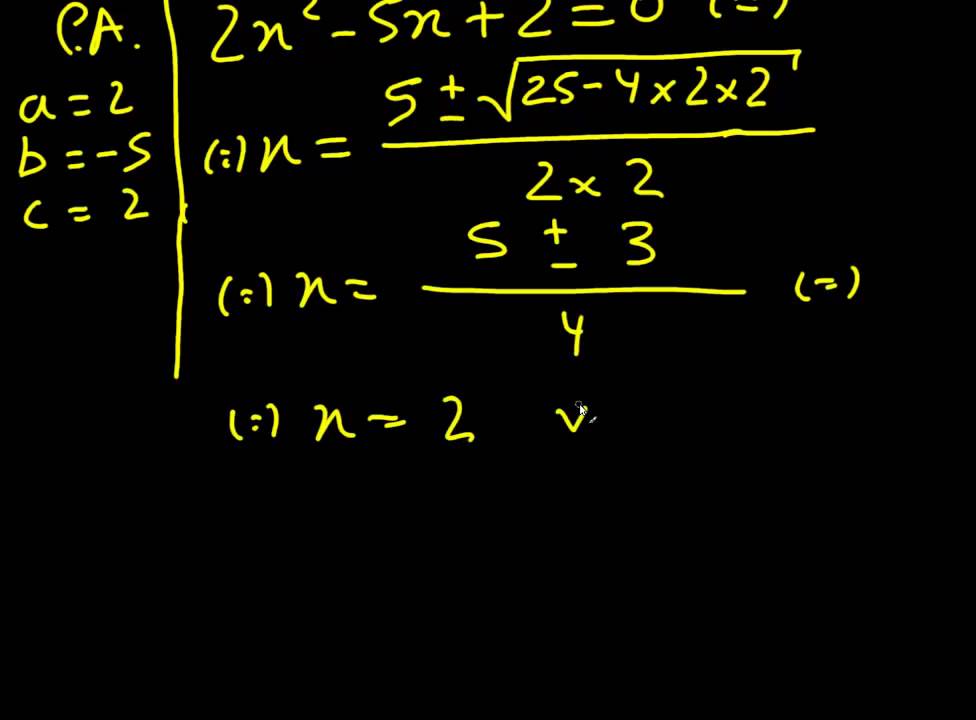 C.A.
a = 2
b = -5
c = 2
2x² - 5x + 2 = 0 (=)
(=) x = 5 ± √25 - 4 x 2 x 2
2 x 2
(=) x = 5 ± 3 (=)
4
(=) x = 2 v